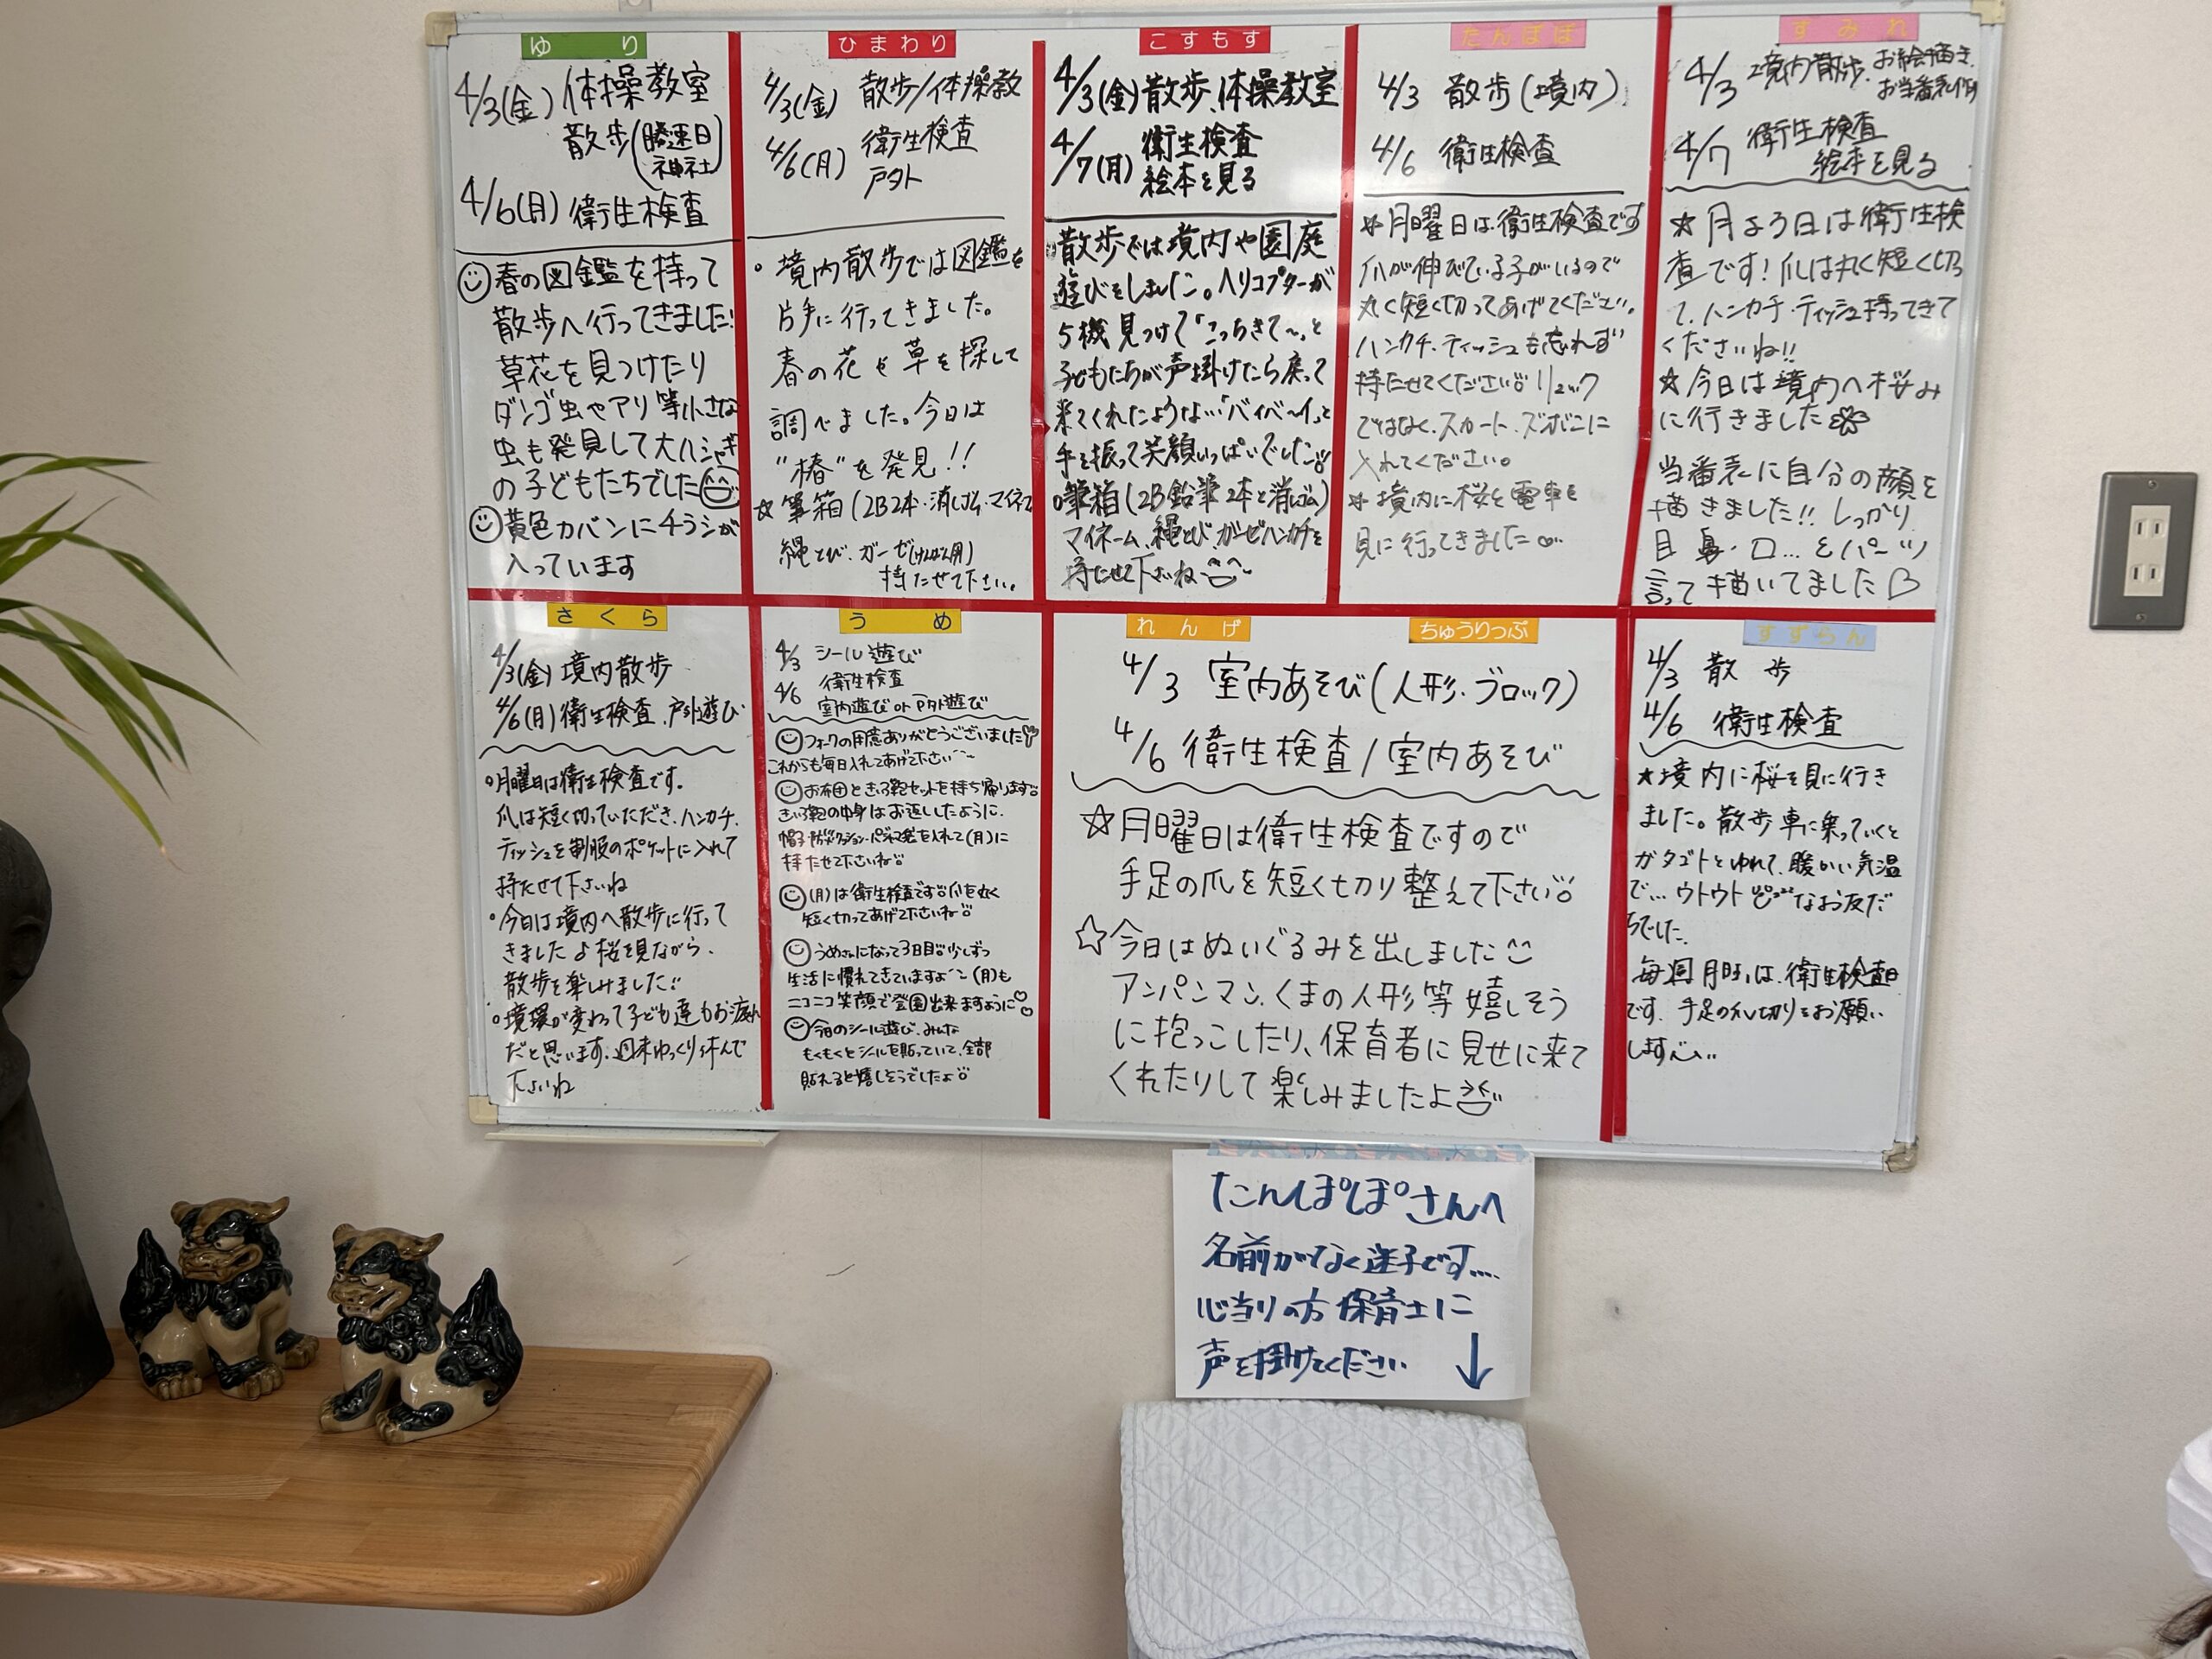 ゆり
4/3(金) 体操教室
散歩(勝速日
神社)
4/6(月) 衛生検査
春の図鑑を持って
散歩へ行ってきました!
草花を見つけたり
ダンゴ虫やアリ等小さな
虫も発見して大ハシャギ
の子どもたちでした
黄色カバンにチラシが
入っています
ひまわり
4/3(金) 散歩/体操教
4/6(月) 衛生検査
戸外
・境内散歩では図鑑を
片手に行ってきました。
春の花や草を探して
調べました。今日は
"椿"を発見!!
☆筆箱(2B2本・消しゴム・マイネーム
縄とび・ガーゼ(けんばん用)
持たせて下さい。
こすもす
4/3(金) 散歩、体操教室
4/7(月) 衛生検査
絵本を見る
散歩では境内や園庭
遊びをしました。ヘリコプターが
5機見つけて「こっちきて〜」と
子どもたちが声掛けたら戻って
来てくれたような…「バイバ〜イ」と
手を振って笑顔いっぱいでした
○筆箱(2B鉛筆2本と消しゴム)
マイネーム、縄とび、ガーゼハンカチを
持たせて下さいね
たんぽぽ
4/3 散歩(境内)
4/6 衛生検査
☆月曜日は衛生検査です
爪が伸びている子がいるので
丸く短く切ってあげてください。
ハンカチ・ティッシュも忘れず
持たせてください リュック
ではなく、スカート・ズボンに
入れてください。
☆境内に桜と電車を
見に行ってきました
すみれ
4/3 境内散歩、お絵描き、
お当番表作り
4/7 衛生検査
絵本を見る
☆月よう日は衛生検
査です!爪は丸く短く切っ
て、ハンカチ・ティッシュ持ってきて
くださいね!!
☆今日は境内へ桜み
に行きました
当番表に自分の顔を
描きました!! しっかり
目・鼻・口…とパーツ
言って描いてました♡
さくら
4/3(金) 境内散歩
4/6(月) 衛生検査、戸外遊び
○月曜日は衛生検査です。
爪は短く切っていただき、ハンカチ、
ティッシュを制服のポケットに入れて
持たせて下さいね
・今日は境内へ散歩に行って
きました♪桜を見ながら、
散歩を楽しみました
○環境が変わって子ども達もお疲れ
だと思います。週末ゆっくり休んで
下さいね
うめ
4/3 シール遊び
4/6 衛生検査
室内遊び or 戸外遊び
フォークの用意ありがとうございました
これからも毎日入れてあげて下さい
お布団ときいろ鞄セットを持ち帰ります
きいろ鞄の中身はお返ししたように、
帽子・パジャマ袋を入れて(月)に
持たせて下さいね
(月)は衛生検査です 爪を丸く
短く切ってあげて下さいね
うめさんになって3日目 少しずつ
生活に慣れてきていますよ (月)も
ニコニコ笑顔で登園出来ますように♡
今日のシール遊び、みんな
もくもくとシールを貼っていて、全部
貼れると嬉しそうでしたよ
れんげ ちゅうりっぷ
4/3 室内あそび(人形・ブロック)
4/6 衛生検査/室内あそび
☆月曜日は衛生検査ですので
手足の爪を短く切り整えて下さい
☆今日はぬいぐるみを出しました
アンパンマン、くまの人形等嬉しそう
に抱っこしたり、保育者に見せに来て
くれたりして楽しみましたよ
すずらん
4/3 散歩
4/6 衛生検査
★境内に桜を見に行き
ました。散歩車に乗っていくと
ガタゴトとゆれて、暖かい気温
で…ウトウトなお友だ
ちでした。
毎週月曜日は、衛生検査日
です。手足の爪切りをお願い
します
たんぽぽさんへ
名前がなく迷子です....
心当りの方保育士に
声を掛けてください ↓